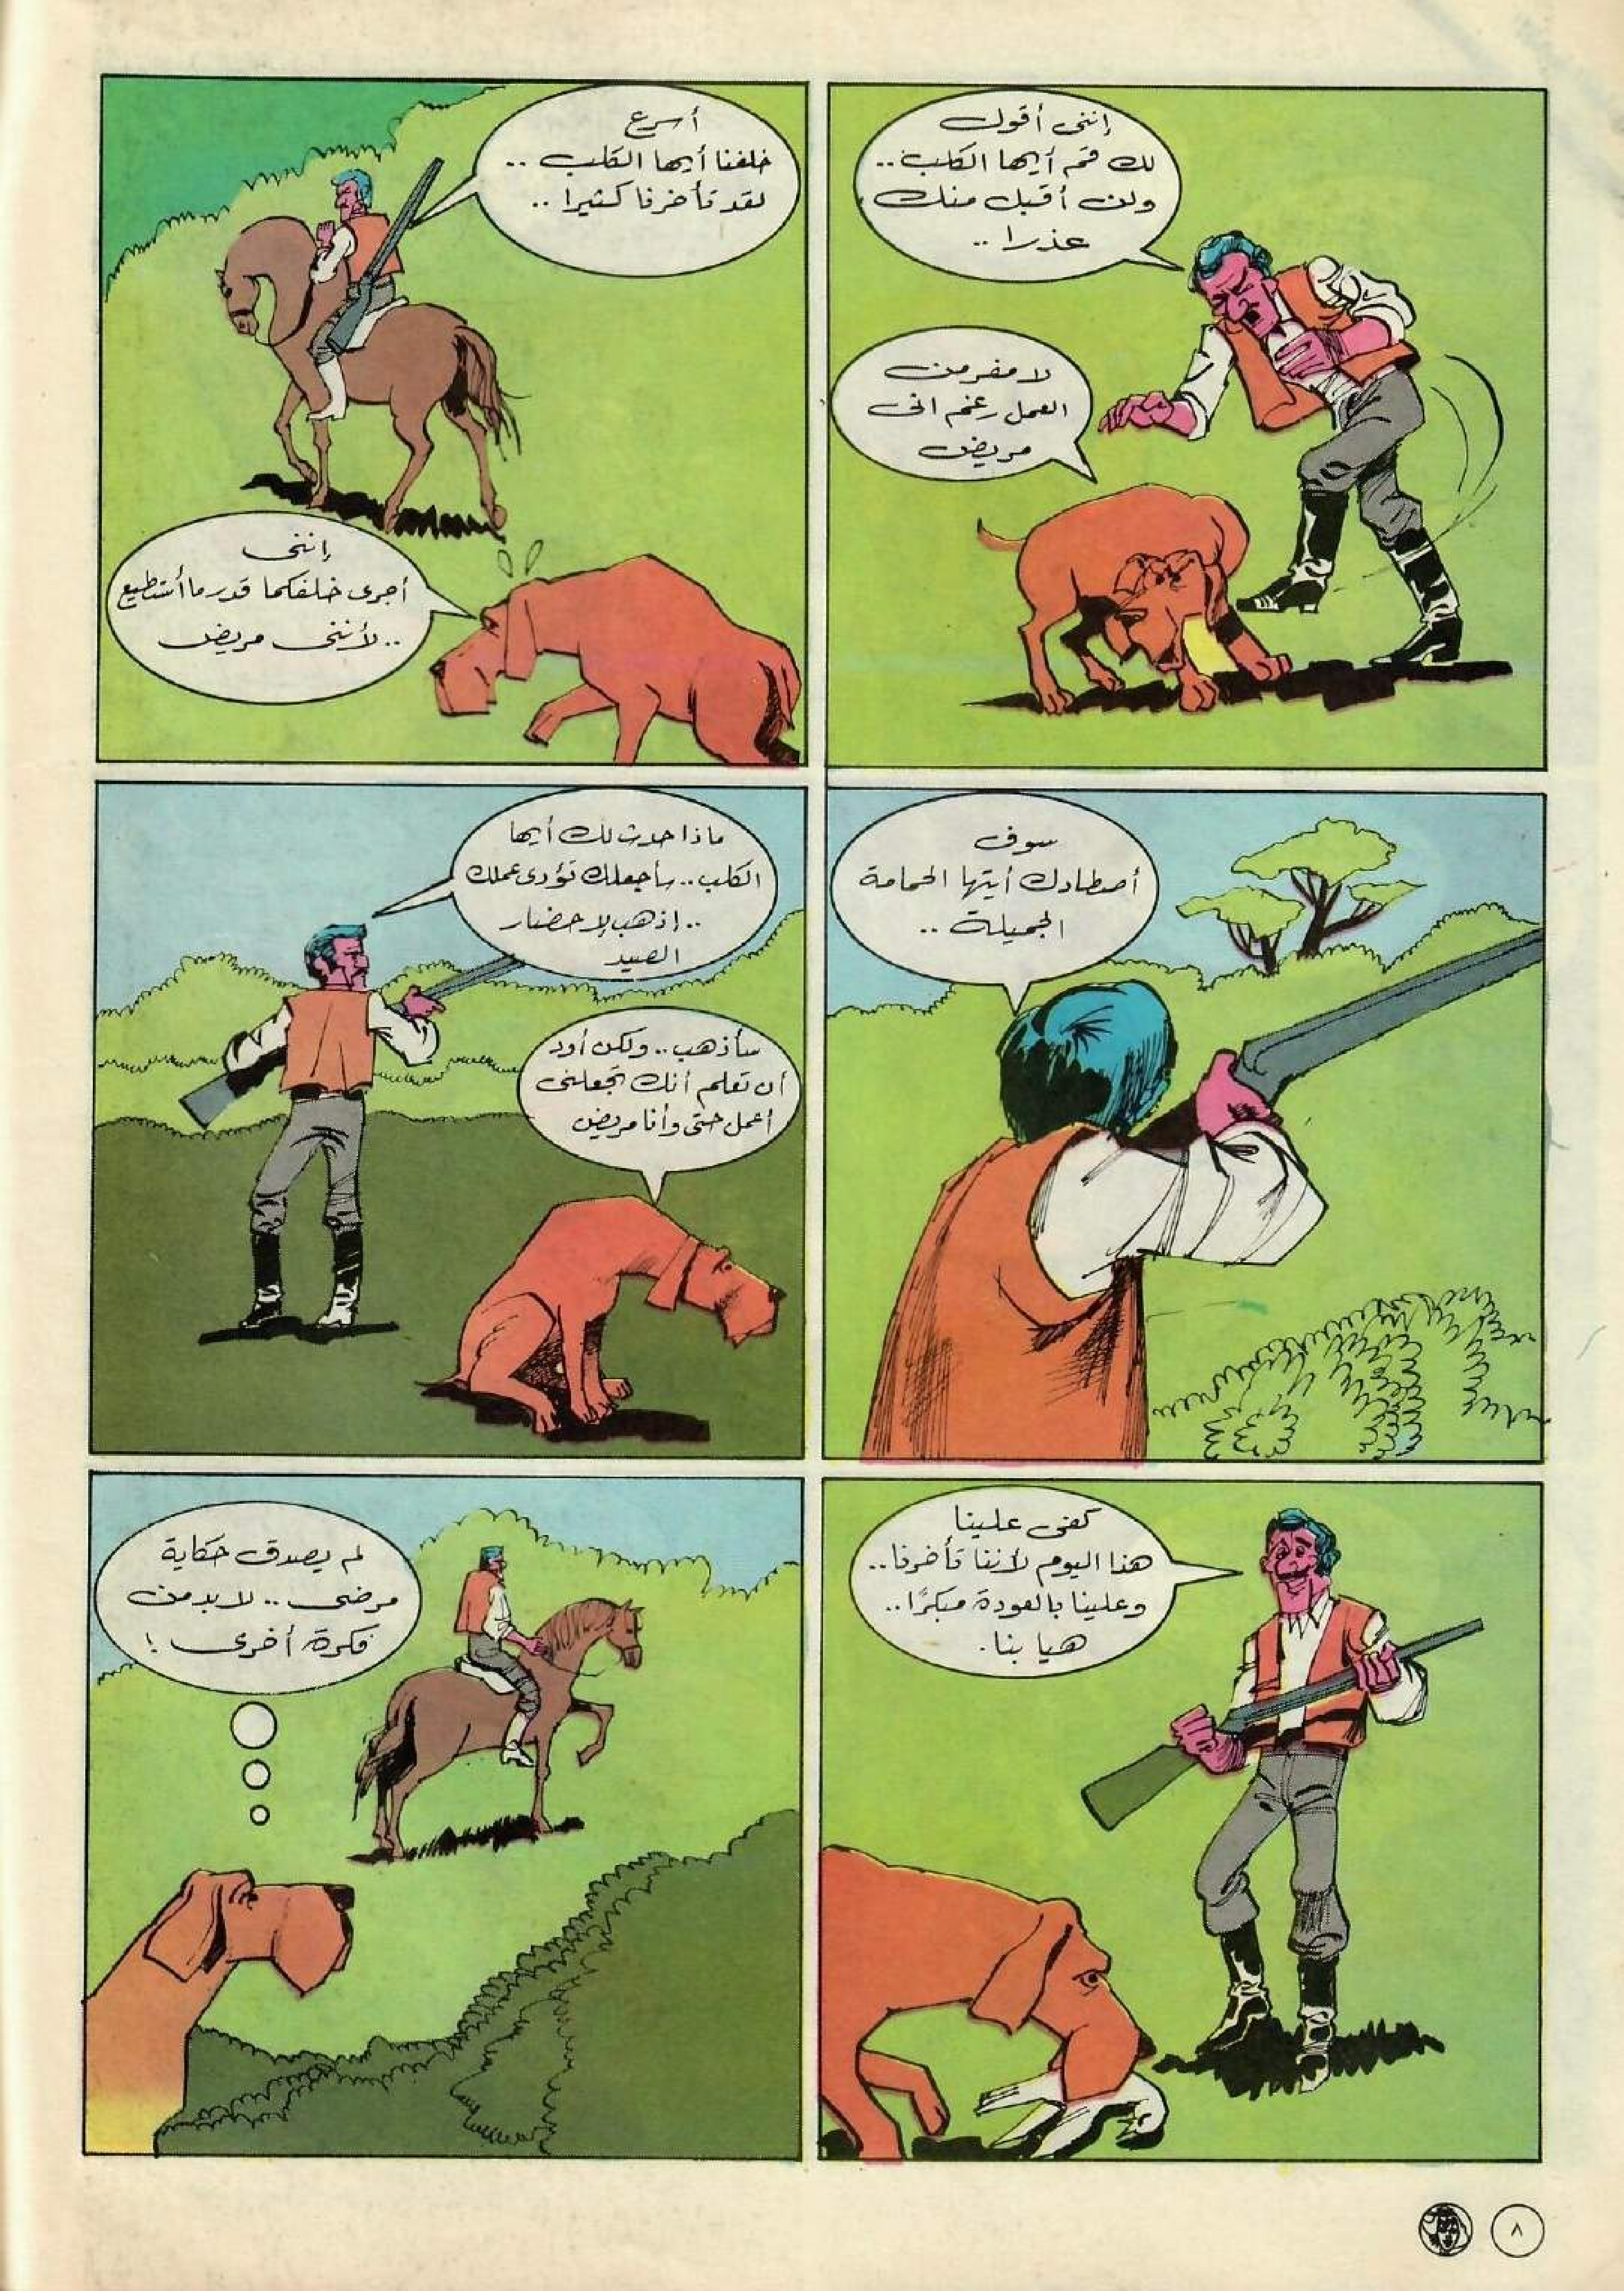 إننى أقول
لك قم أيها الكلب..
ولن أقبل منك
عذرا ..
لا مفر من
العمل رغم انى
مريض
أسرع
خلفنا أيها الكلب ..
لقد تأخرنا كثيرا ..
إننى
أجرى خلفكما قدر ما أستطيع
.. لأننى مريض
سوف
أصطادك أيتها الحمامة
الجميلة ..
ماذا حدث لك أيها
الكلب.. سأجعلك تؤدى عملك
.. إذهب لإحضار
الصيد
سأذهب.. ولكن أود
أن تعلم أنك تجعلنى
أعمل حتى وأنا مريض
كفى علينا
هذا اليوم لأننا تأخرنا..
وعلينا بالعودة مبكرًا..
هيا بنا.
لم يصدق حكاية
مرضى .. لابد من
فكرة أخرى !
٨